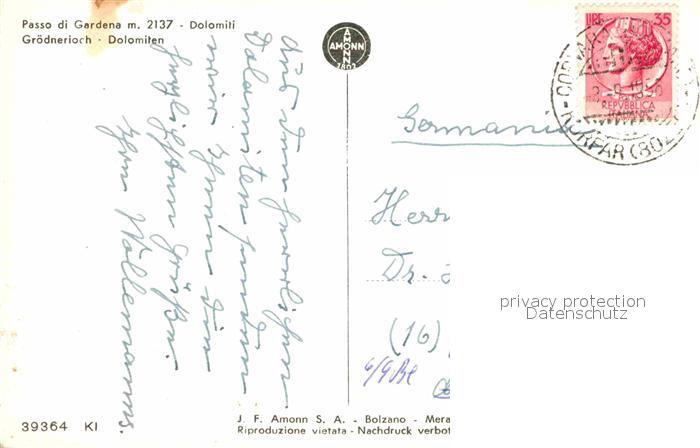 Passo di Gardena m. 2137 - Dolomiti
Grödnerjoch - Dolomiten
AMONN
LIRE 35
REPVBBLICA
ITALIANA
Aus den herrlichen
Dolomiten senden
wir Ihnen die
herzlichsten Grüße.
Ihre Wöllermanns.
Germania
Herr
Dr.
(16)
privacy protection
Datenschutz
39364 KI
J. F. Amonn S. A. - Bolzano - Mera
Riproduzione vietata - Nachdruck verbot